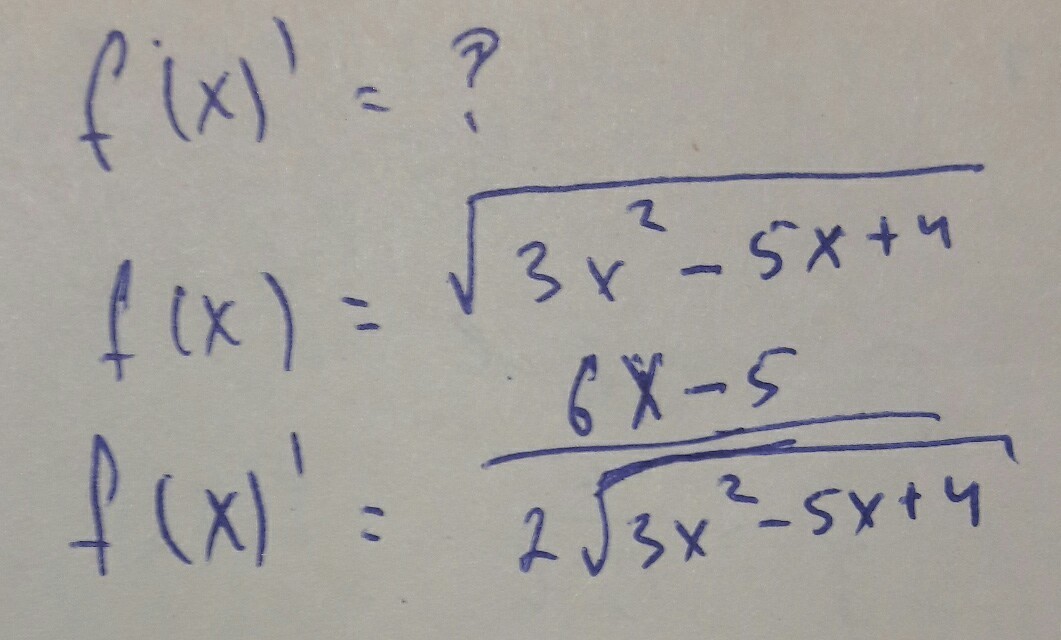 f(x)' = ?
f(x) = √(3x² - 5x + 4)
f(x)' = (6x - 5)/(2√(3x² - 5x + 4))